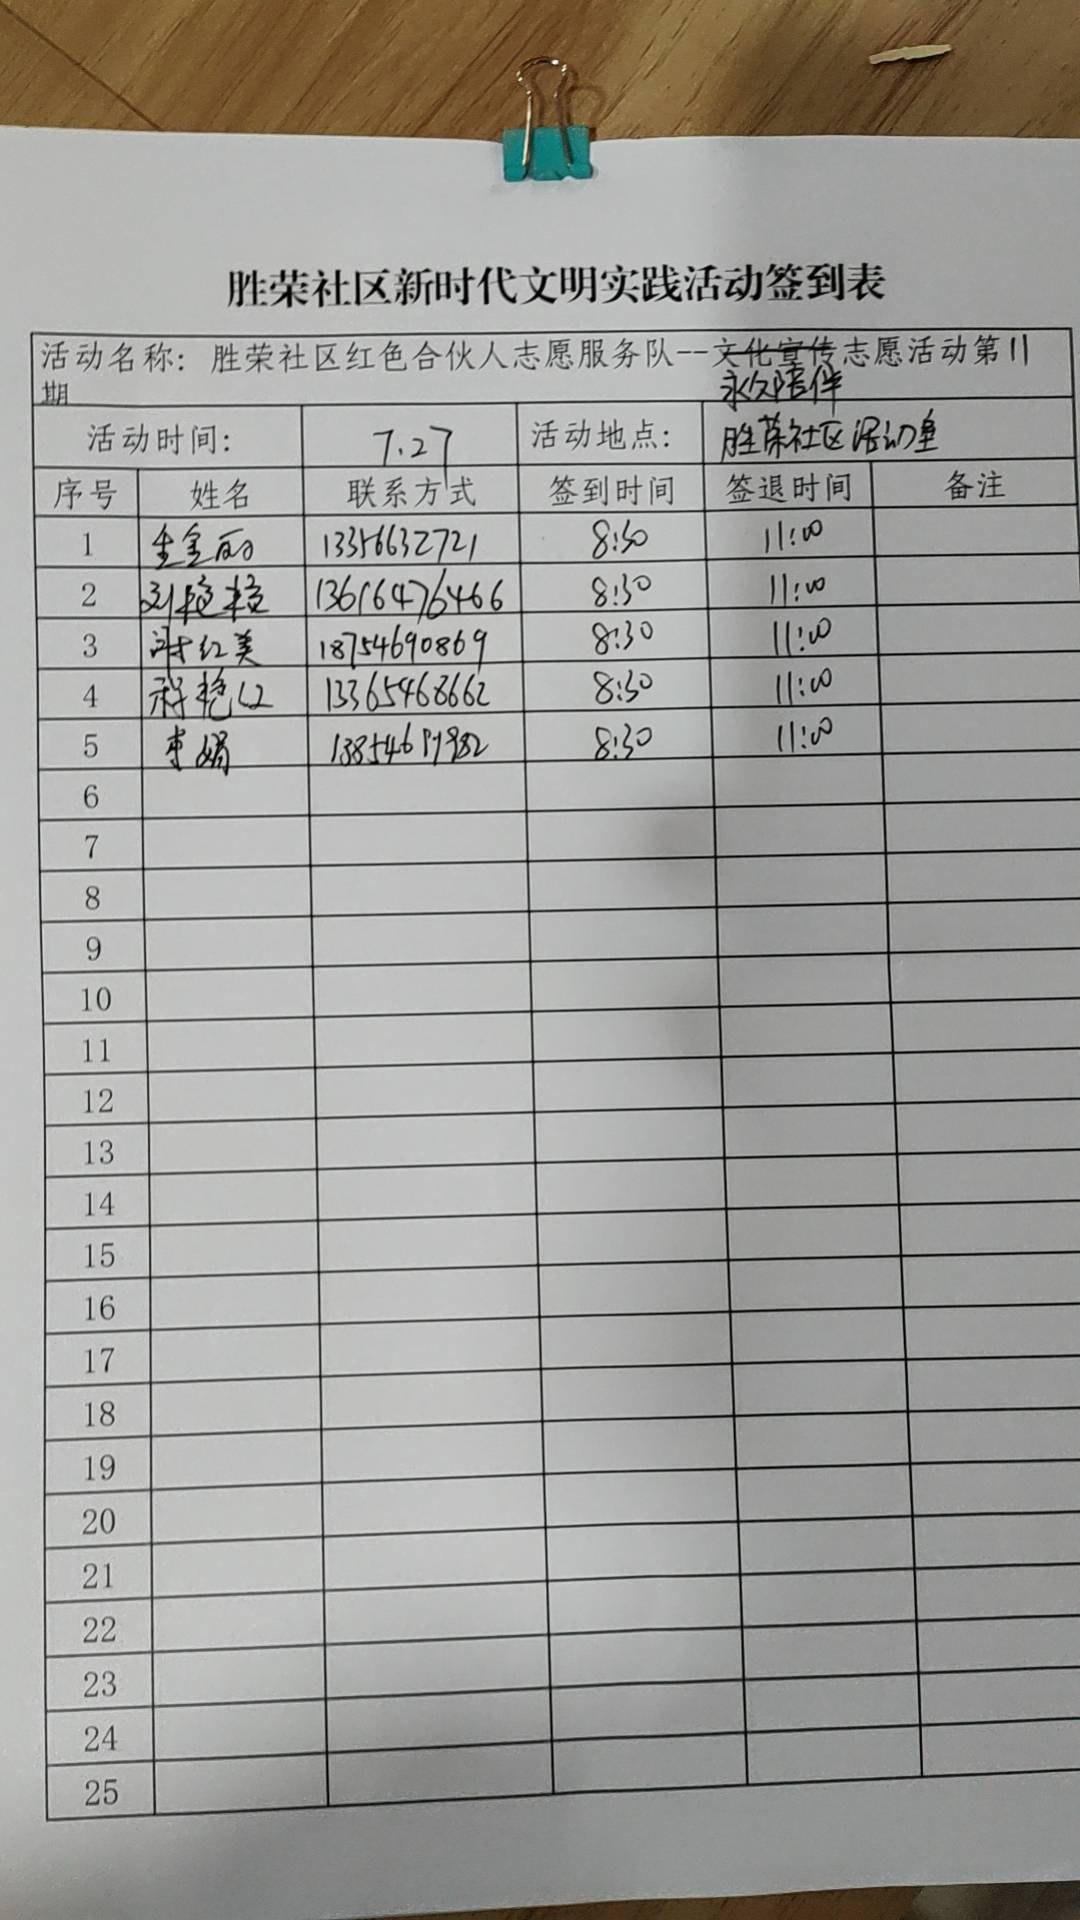 胜荣社区新时代文明实践活动签到表
活动名称：胜荣社区红色合伙人志愿服务队--文化宣传志愿活动第11
期
永久陪伴
活动时间： 7.27 活动地点： 胜荣社区活动室
序号 姓名 联系方式 签到时间 签退时间 备注
1 金丽 13356632721 8:30 11:00
2 刘艳艳 13616476466 8:30 11:00
3 红美 18754690869 8:30 11:00
4 艳 13365468662 8:30 11:00
5 李娟 8:30 11:00
6
7
8
9
10
11
12
13
14
15
16
17
18
19
20
21
22
23
24
25